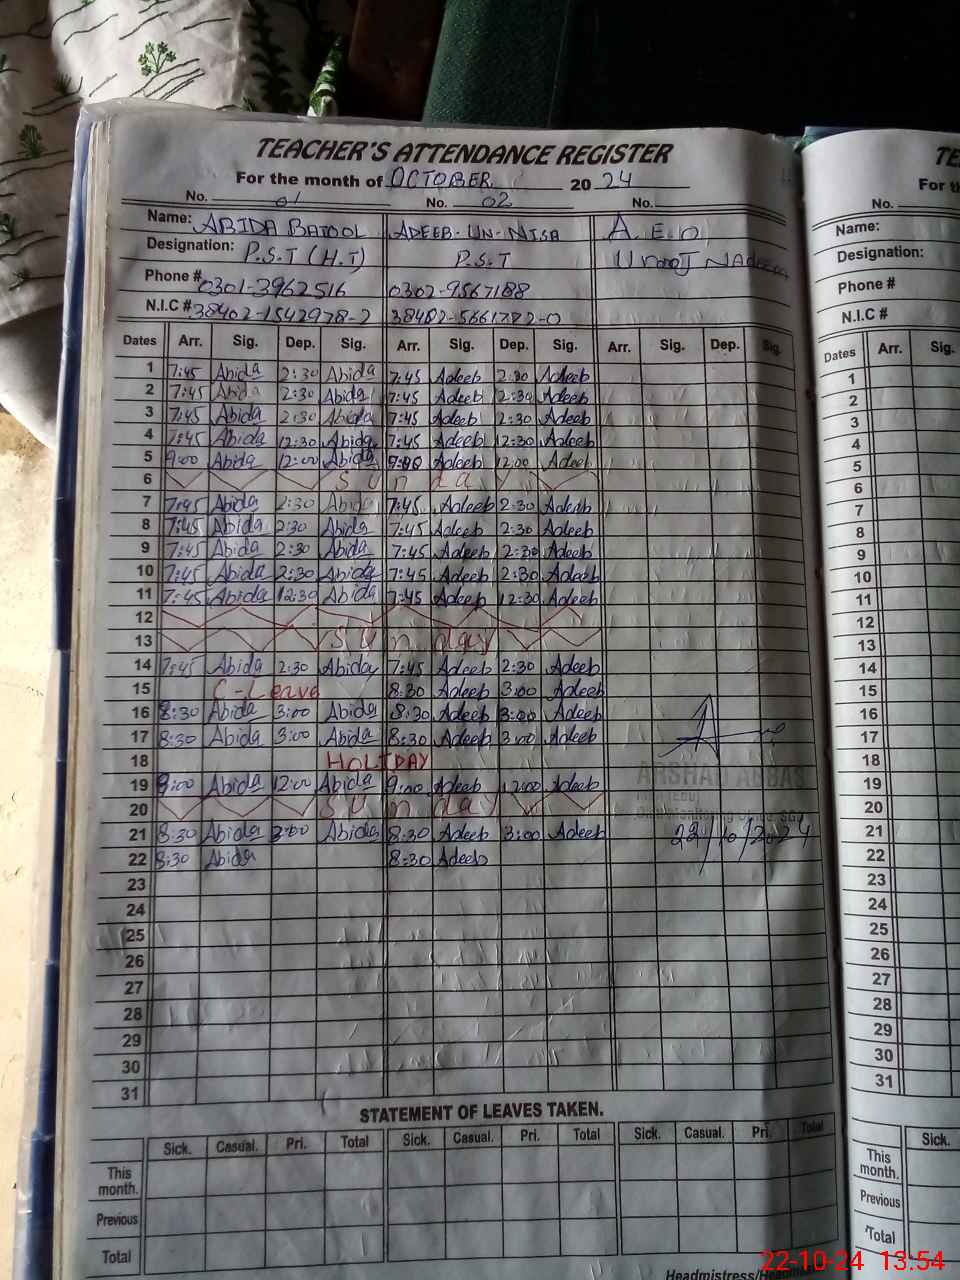 TEACHER'S ATTENDANCE REGISTER
For the month of OCTOBER 20 24
No. 01 No. 02 No.
Name: ABIDA BATOOL ADEEB-UN-NISA A.E.O
Designation: P.S.T (H.T) P.S.T Urooj Nadeem
Phone # 0301-3962516 0302-9567188
N.I.C # 38402-1542978-2
Dates Arr. Sig. Dep. Sig. Arr. Sig. Dep. Sig. Arr. Sig. Dep. Sig.
1 7:45 Abida 2:30 Abida 7:45 Adeeb 2:30 Adeeb
2 7:45 Abida 2:30 Abida 7:45 Adeeb 2:30 Adeeb
3 7:45 Abida 2:30 Abida 7:45 Adeeb 2:30 Adeeb
4 7:45 Abida 12:30 Abida 7:45 Adeeb 12:30 Adeeb
5 9:00 Abida 12:00 Abida 9:00 Adeeb 12:00 Adeeb
6 Sunday
7 7:45 Abida 2:30 Abida 7:45 Adeeb 2:30 Adeeb
8 7:45 Abida 2:30 Abida 7:45 Adeeb 2:30 Adeeb
9 7:45 Abida 2:30 Abida 7:45 Adeeb 2:30 Adeeb
10 7:45 Abida 2:30 Abida 7:45 Adeeb 2:30 Adeeb
11 7:45 Abida 12:30 Abida 7:45 Adeeb 12:30 Adeeb
12
13 Sunday
14 7:45 Abida 2:30 Abida 7:45 Adeeb 2:30 Adeeb
15 C-Leave 8:30 Adeeb 3:00 Adeeb
16 8:30 Abida 3:00 Abida 8:30 Adeeb 3:00 Adeeb
17 8:30 Abida 3:00 Abida 8:30 Adeeb 3:00 Adeeb
18 HOLIDAY
19 9:00 Abida 12:00 Abida 9:00 Adeeb 12:00 Adeeb
ARSHAD ABBAS
20 Sunday
21 8:30 Abida 3:00 Abida 8:30 Adeeb 3:00 Adeeb 22/10/2024
22 8:30 Abida 8:30 Adeeb
23
24
25
26
27
28
29
30
31
STATEMENT OF LEAVES TAKEN.
Sick. Casual. Pri. Total Sick. Casual. Pri. Total Sick. Casual. Pri. Total
This month.
Previous
Total
Headmistress/
TE
For th
No.
Name:
Designation:
Phone #
N.I.C #
Dates Arr. Sig.
1
2
3
4
5
6
7
8
9
10
11
12
13
14
15
16
17
18
19
20
21
22
23
24
25
26
27
28
29
30
31
Sick.
This month.
Previous
Total
22-10-24 13:54